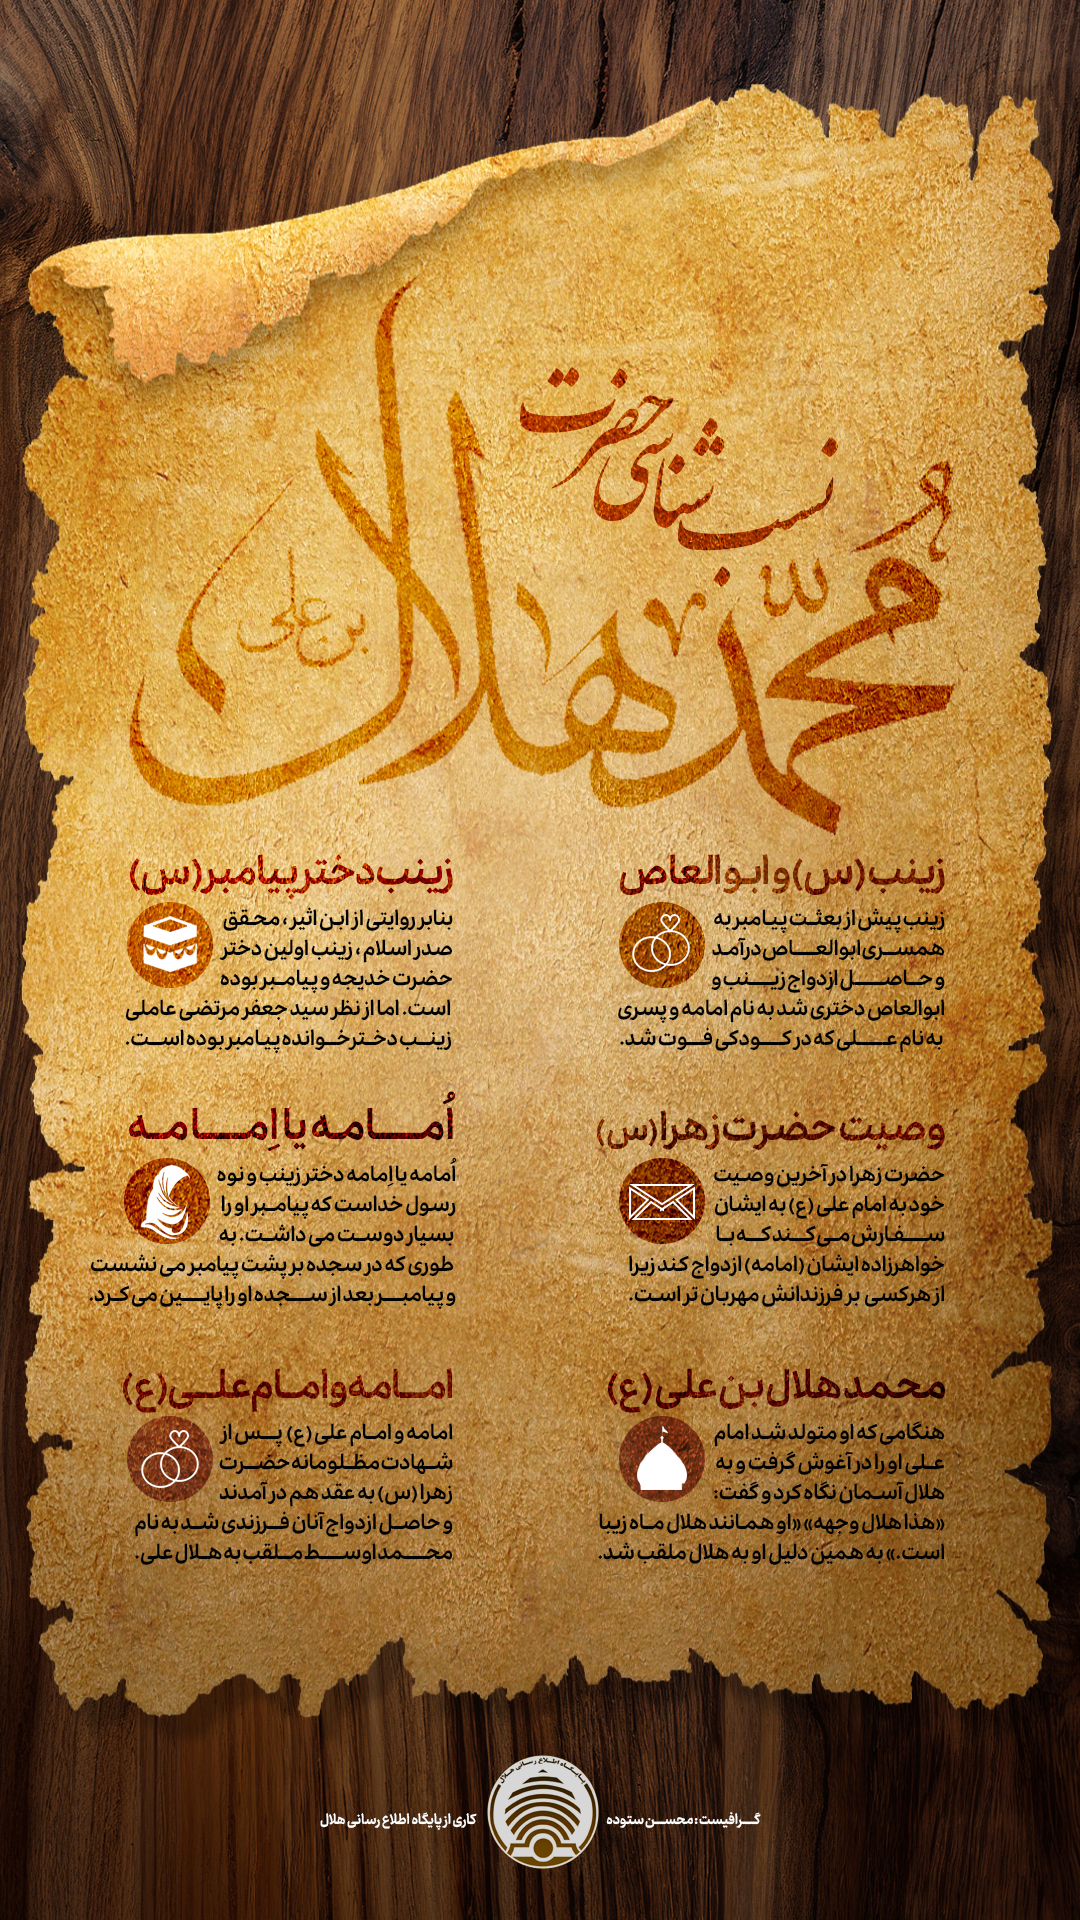 نسب شناسی حضرت
محمد هلال
بن علی
زینب (س) و ابوالعاص
زینب پیش از بعثت پیامبر به
همسری ابوالعاص درآمد
و حاصل ازدواج زینب و
ابوالعاص دختری شد به نام امامه و پسری
به نام علی که در کودکی فوت شد.
زینب دختر پیامبر (س)
بنابر روایتی از ابن اثیر، محقق
صدر اسلام، زینب اولین دختر
حضرت خدیجه و پیامبر بوده
است. اما از نظر سید جعفر مرتضی عاملی
زینب دخترخوانده پیامبر بوده است.
وصیت حضرت زهرا (س)
حضرت زهرا در آخرین وصیت
خود به امام علی (ع) به ایشان
سفارش می کند که با
خواهرزاده ایشان (امامه) ازدواج کند زیرا
از هرکسی بر فرزندانش مهربان تر است.
اُمامه یا اِمامه
اُمامه یا اِمامه دختر زینب و نوه
رسول خداست که پیامبر او را
بسیار دوست می داشت. به
طوری که در سجده بر پشت پیامبر می نشست
و پیامبر بعد از سجده او را پایین می کرد.
محمد هلال بن علی (ع)
هنگامی که او متولد شد امام
علی او را در آغوش گرفت و به
هلال آسمان نگاه کرد و گفت:
«هذا هلال وجهه» «او همانند هلال ماه زیبا
است.» به همین دلیل او به هلال ملقب شد.
امامه و امام علی (ع)
امامه و امام علی (ع) پس از
شهادت مظلومانه حضرت
زهرا (س) به عقد هم درآمدند
و حاصل ازدواج آنان فرزندی شد به نام
محمد اوسط ملقب به هلال علی.
پایگاه اطلاع رسانی هلال
گرافیست: محسن ستوده
کاری از پایگاه اطلاع رسانی هلال